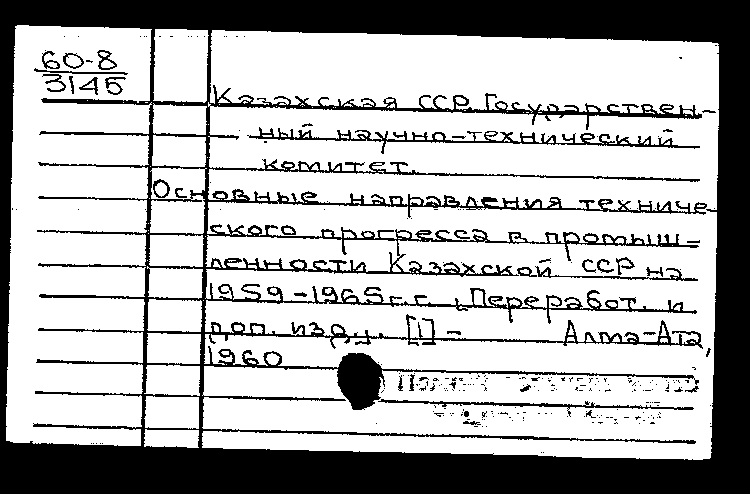 60-8
3145
Казахская ССР. Государствен-
ный научно-технический
комитет.
Основные направления техниче-
ского прогресса в промыш-
ленности Казахской ССР на
1959-1965 г.г. Переработ. и
доп. изд.
[1] - Алма-Ата,
1960